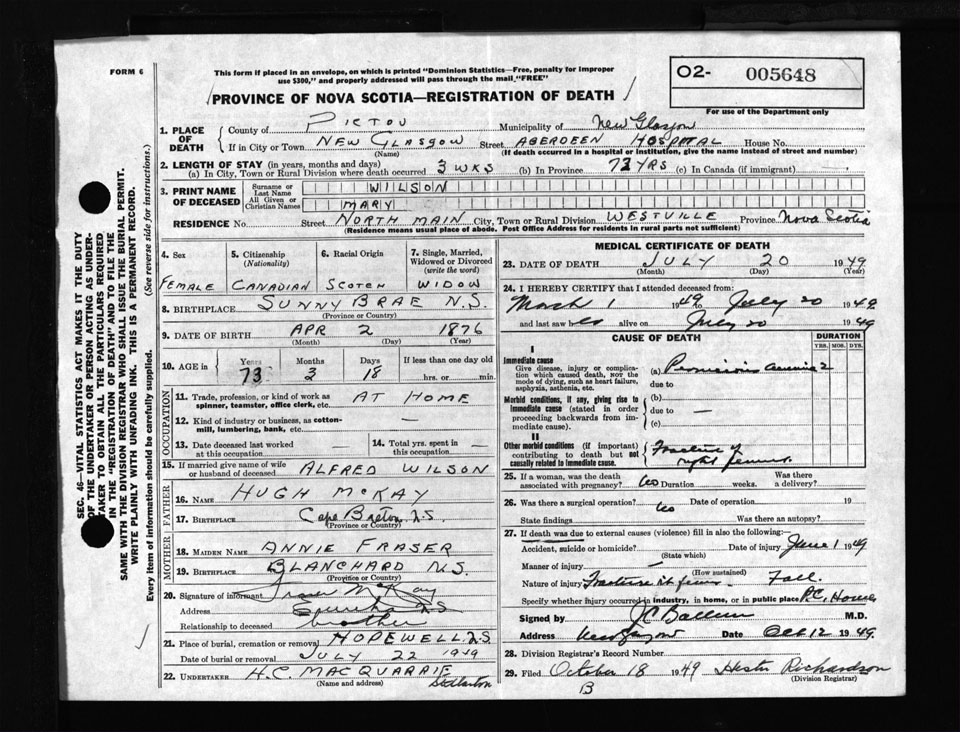 FORM 6
This form if placed in an envelope, on which is printed "Dominion Statistics—Free, penalty for improper
use $300," and properly addressed will pass through the mail "FREE"
O2- 005648
For use of the Department only
PROVINCE OF NOVA SCOTIA—REGISTRATION OF DEATH
SEC. 46—VITAL STATISTICS ACT MAKES IT THE DUTY
OF THE UNDERTAKER OR PERSON ACTING AS UNDER-
TAKER TO OBTAIN ALL THE PARTICULARS REQUIRED
IN THE "REGISTRATION OF DEATH" AND TO FILE THE
SAME WITH THE DIVISION REGISTRAR WHO SHALL ISSUE THE BURIAL PERMIT.
WRITE PLAINLY WITH UNFADING INK. THIS IS A PERMANENT RECORD.
Every item of information should be carefully supplied. (See reverse side for instructions.)
1. PLACE OF DEATH County of PICTOU Municipality of New Glasgow
If in City or Town NEW GLASGOW Street ABERDEEN HOSPITAL House No.
(Name) (If death occurred in a hospital or institution, give the name instead of street and number)
2. LENGTH OF STAY (in years, months and days)
(a) In City, Town or Rural Division where death occurred 3 WKS (b) In Province 73 YRS (c) In Canada (if immigrant)
3. PRINT NAME OF DECEASED Surname or Last Name WILSON
All Given or Christian Names MARY
RESIDENCE No. Street NORTH MAIN City, Town or Rural Division WESTVILLE Province Nova Scotia
(Residence means usual place of abode. Post Office Address for residents in rural parts not sufficient)
4. Sex 5. Citizenship (Nationality) 6. Racial Origin 7. Single, Married, Widowed or Divorced (write the word)
FEMALE CANADIAN SCOTCH WIDOW
8. BIRTHPLACE SUNNY BRAE N.S.
(Province or Country)
9. DATE OF BIRTH APR 2 1876
(Month) (Day) (Year)
10. AGE in Years Months Days If less than one day old
73 3 18 hrs. or min.
OCCUPATION
11. Trade, profession, or kind of work as
spinner, teamster, office clerk, etc. AT HOME
12. Kind of industry or business, as cotton-
mill, lumbering, bank, etc. —
13. Date deceased last worked at this occupation — 14. Total yrs. spent in this occupation —
15. If married give name of wife
or husband of deceased ALFRED WILSON
FATHER
16. NAME HUGH McKAY
17. BIRTHPLACE Cape Breton N.S.
(Province or Country)
MOTHER
18. MAIDEN NAME ANNIE FRASER
19. BIRTHPLACE BLANCHARD N.S.
(Province or Country)
20. Signature of informant McKay
Address Eureka N.S.
Relationship to deceased brother
21. Place of burial, cremation or removal HOPEWELL N.S.
Date of burial or removal JULY 22 1949
22. UNDERTAKER H.C. MACQUARRIE Stellarton
(Name and address)
MEDICAL CERTIFICATE OF DEATH
23. DATE OF DEATH JULY 20 1949
(Month) (Day) (Year)
24. I HEREBY CERTIFY that I attended deceased from:
March 1 1949 to July 20 1949
and last saw her alive on July 20 1949
CAUSE OF DEATH DURATION
YRS. MOS. DYS.
I
Immediate cause
Give disease, injury or complica-
tion which caused death, NOT the
mode of dying, such as heart failure,
asphyxia, asthenia, etc.
(a) Pernicious anemia 2
due to
Morbid conditions, if any, giving rise to
immediate cause (stated in order
proceeding backwards from im-
mediate cause).
(b)
due to —
(c)
II
Other morbid conditions (if important)
contributing to death but not
causally related to immediate cause.
Fracture of
right femur.
25. If a woman, was the death
associated with pregnancy? No Duration weeks. Was there a delivery?
26. Was there a surgical operation? No Date of operation 19
State findings Was there an autopsy?
27. If death was due to external causes (violence) fill in also the following:
Accident, suicide or homicide? Date of injury June 1 1949
(State which)
Manner of injury —
(How sustained)
Nature of injury Fracture rt femur Fall.
Specify whether injury occurred in industry, in home, or in public place P.C. Home
Signed by M.D.
Address New Glasgow Date Oct 12 1949.
28. Division Registrar's Record Number
29. Filed October 18 1949 Hester Richardson
(Division Registrar)
B